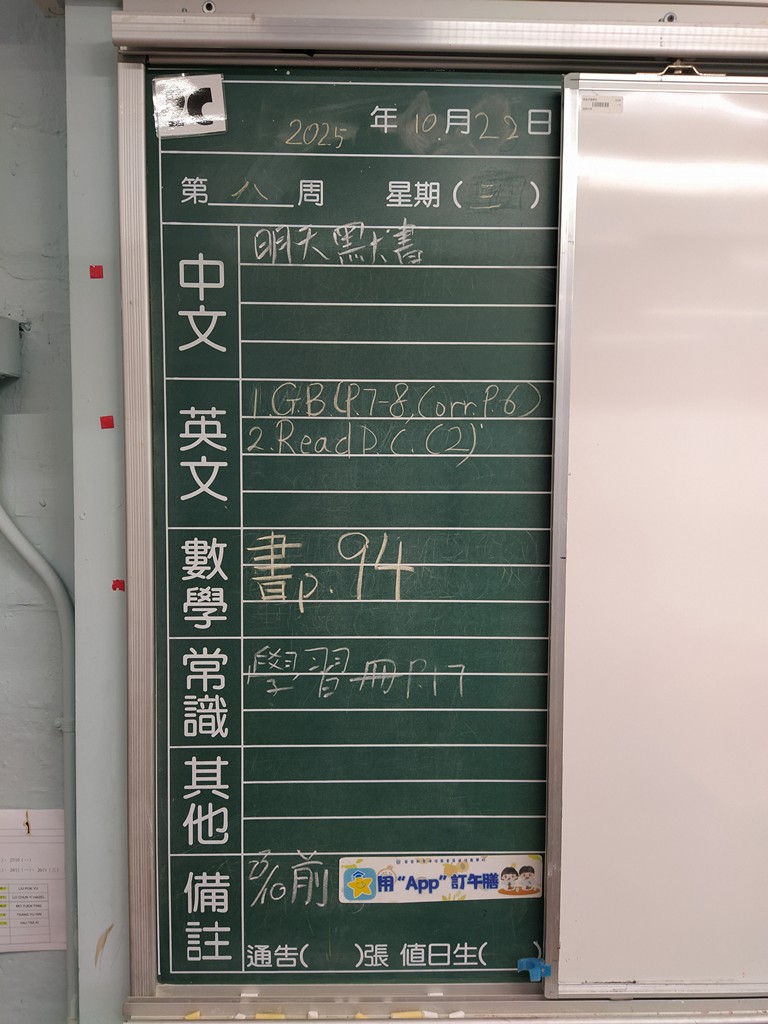 2025年10月22日
第八周 星期(三)
中文
明天默書
英文
1.G.B.(P.7-8,Corr.P.6)
2.Read D.C.(2)
數學
書p.94
常識
學習冊P.17
其他
備註
23/10前
用“App”訂午膳
通告( )張 值日生( )